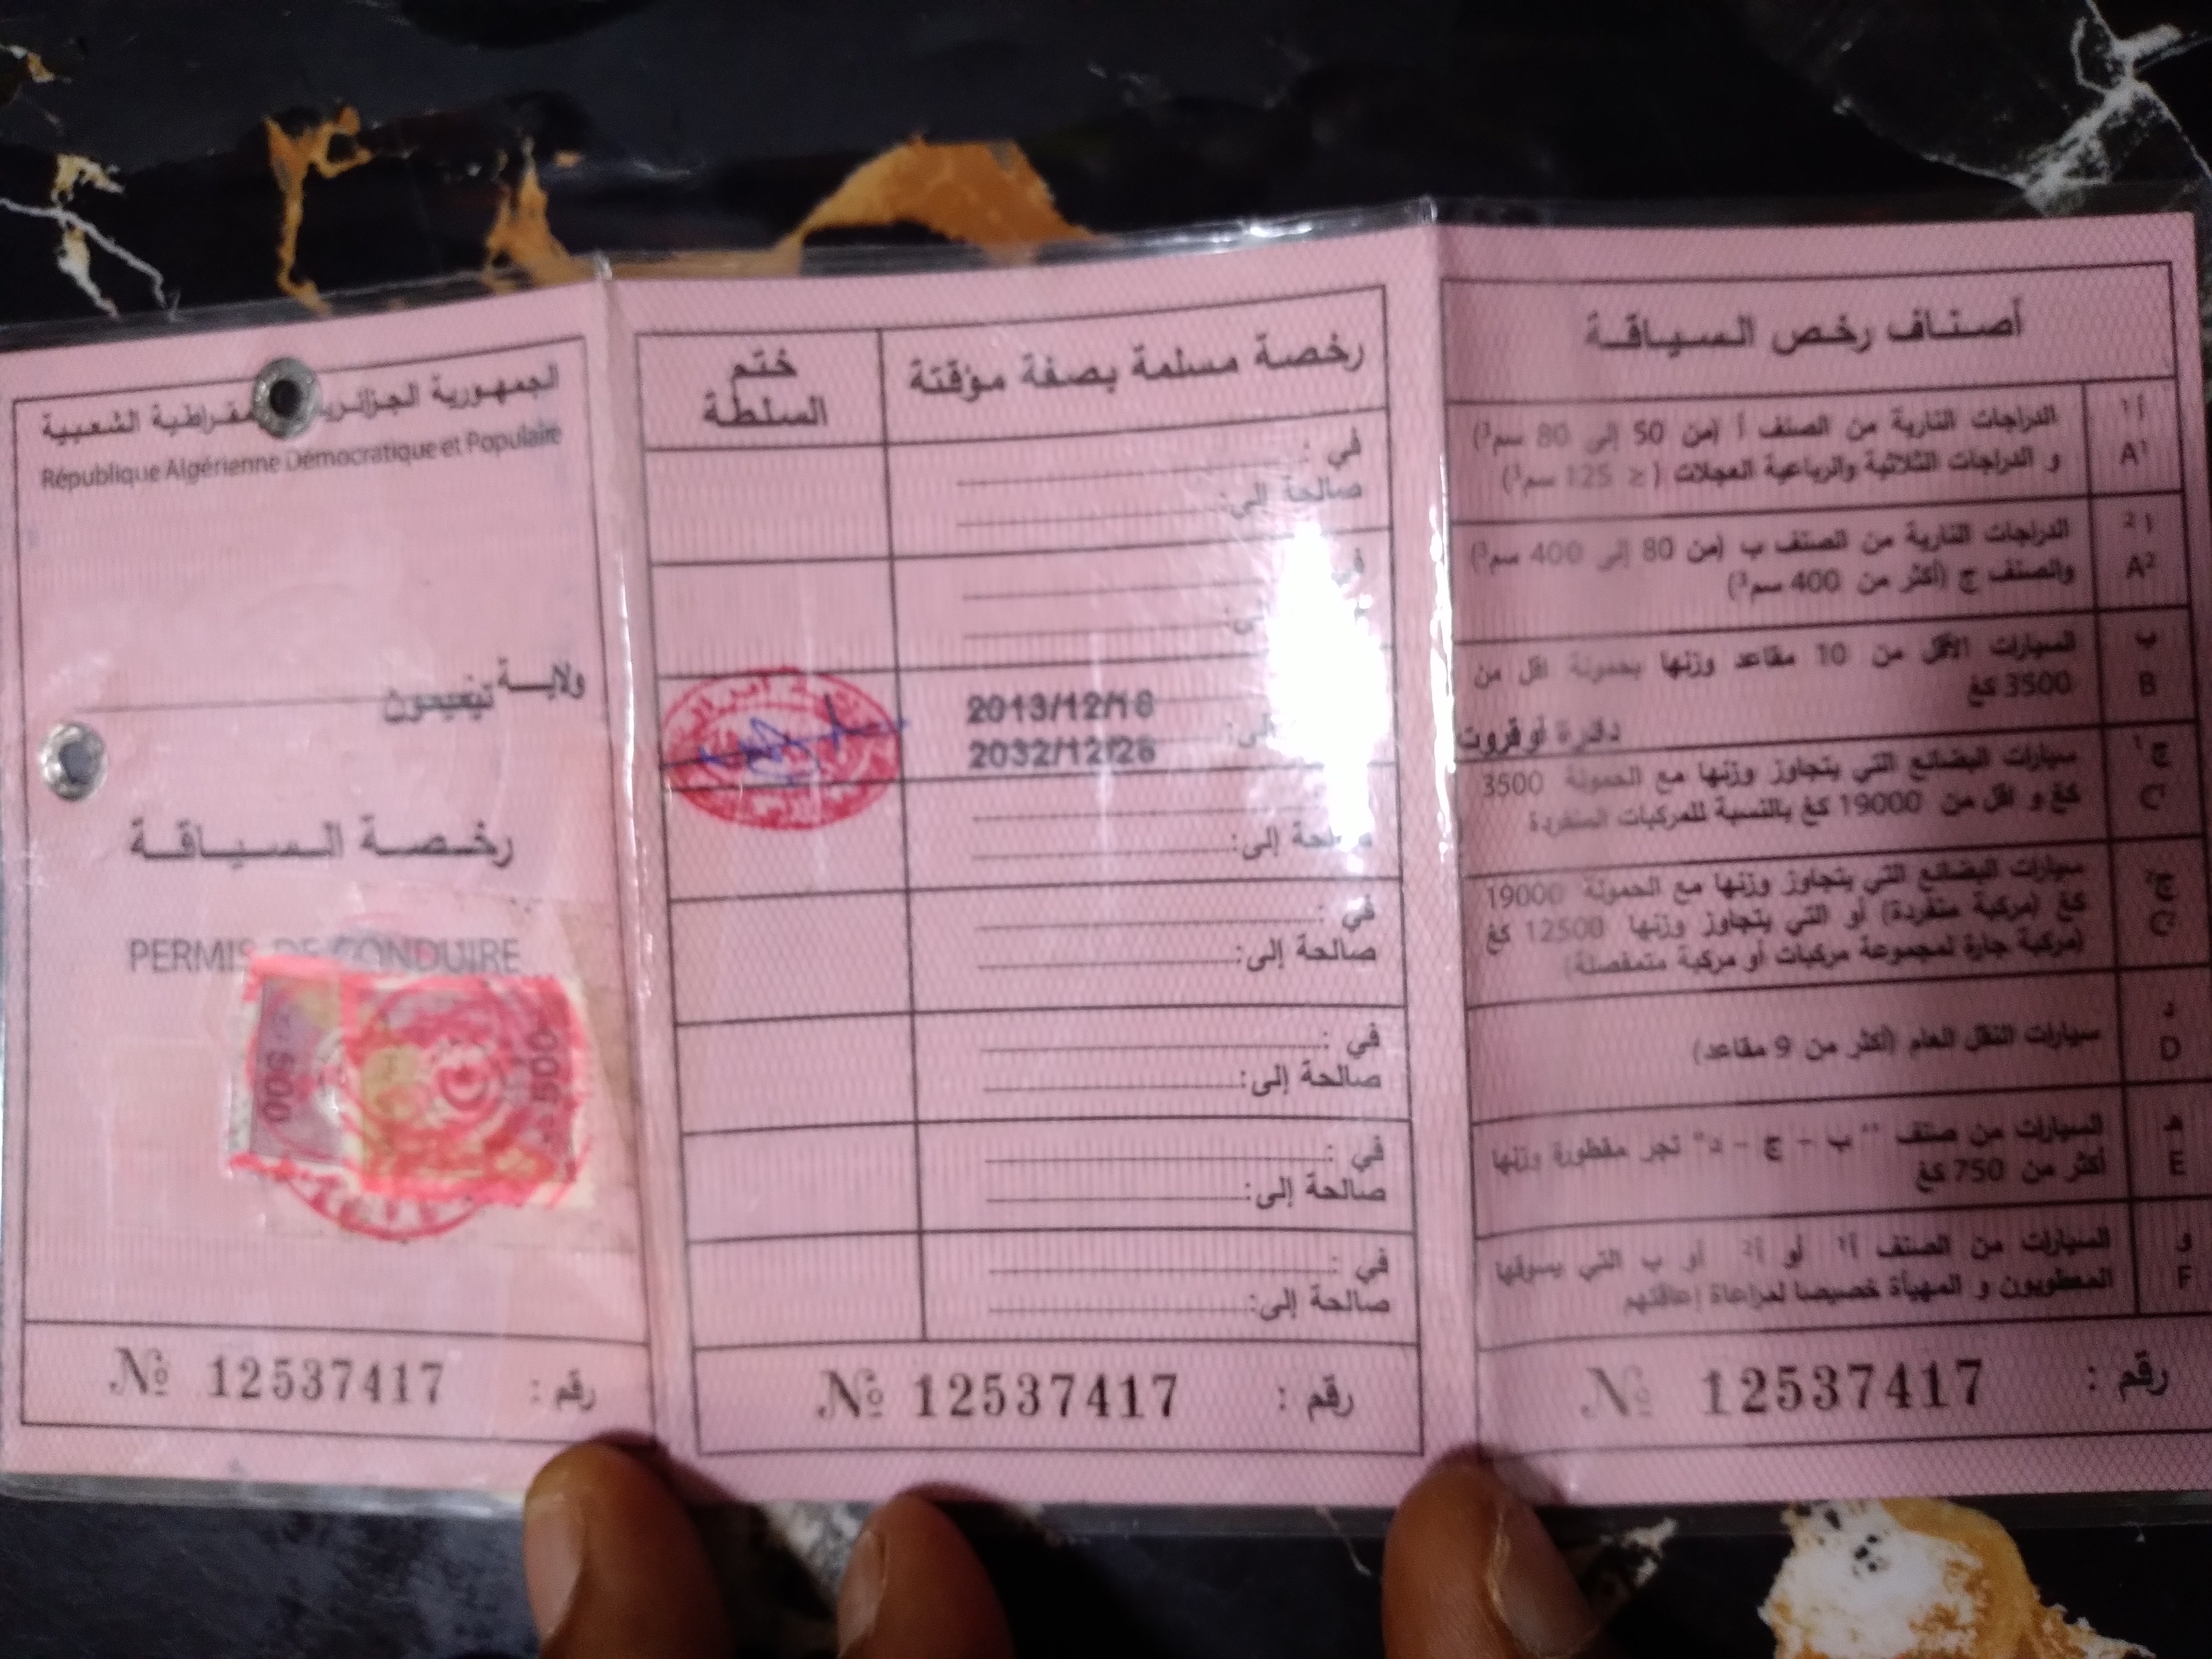 أصناف رخص السياقة
أ¹ A¹
الدراجات النارية من الصنف أ (من 50 إلى 80 سم³)
و الدراجات الثلاثية والرباعية العجلات (≤ 125 سم³)
أ² A²
الدراجات النارية من الصنف ب (من 80 إلى 400 سم³)
والصنف ج (أكثر من 400 سم³)
ب B
السيارات الأقل من 10 مقاعد وزنها بحمولة اقل من
3500 كغ
دائرة أوقروت
ج¹ C¹
سيارات البضائع التي يتجاوز وزنها مع الحمولة 3500
كغ و اقل من 19000 كغ بالنسبة للمركبات المنفردة
ج² C²
سيارات البضائع التي يتجاوز وزنها مع الحمولة 19000
كغ (مركبة منفردة) أو التي يتجاوز وزنها 12500 كغ
(مركبة جارة لمجموعة مركبات أو مركبة متمفصلة)
د D
سيارات النقل العام (أكثر من 9 مقاعد)
هـ E
السيارات من صنف "ب - ج - د" تجر مقطورة وزنها
أكثر من 750 كغ
و F
السيارات من الصنف أ¹ أو أ² أو ب التي يسوقها
المعطوبون و المهيأة خصيصا لمراعاة إعاقتهم
رقم : № 12537417
رخصة مسلمة بصفة مؤقتة
ختم
السلطة
في :
صالحة إلى:
في
إلى:
2013/12/18
إلى: 2032/12/26
صالحة إلى:
في :
صالحة إلى:
في :
صالحة إلى:
في :
صالحة إلى:
في :
صالحة إلى:
رقم : № 12537417
الجمهورية الجزائرية الديمقراطية الشعبية
République Algérienne Démocratique et Populaire
ولاية تيميمون
رخصة السياقة
PERMIS DE CONDUIRE
500
500
رقم : № 12537417